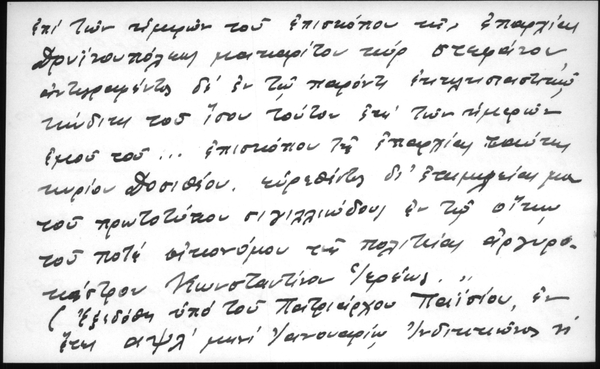 ἐπὶ τῶν ἡμερῶν τοῦ ἐπισκόπου τῆς ἐπαρχίας
Δρυϊνουπόλεως μακαρίτου κὺρ Στεφάνου,
ἀντιγραφέντος δὲ ἐν τῷ παρόντι ἐκκλησιαστικῷ
κώδικι τοῦ ἴσου τούτου ἐπὶ τῶν ἡμερῶν
ἐμοῦ τοῦ ... ἐπισκόπου τῆς ἐπαρχίας ταύτης
κυρίου Δοσιθέου. εὑρεθέντος δι' ἐπιμελείας μου
τοῦ πρωτοτύπου σιγιλλιώδους ἐν τῷ οἴκῳ
τοῦ ποτὲ οἰκονόμου τῆς πολιτείας Ἀργυρο-
κάστρου Κωνσταντίνου Ἱερέως. ..
(Ἐξεδόθη ὑπὸ τοῦ Πατριάρχου Παϊσίου, ἐν
ἔτει αψλ' μηνὶ Ἰανουαρίῳ Ἰνδικτιῶνος